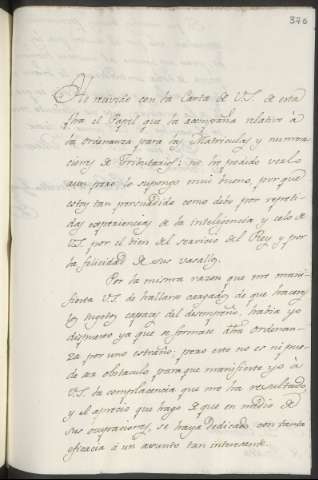 376
He recivido con la Carta de V.S. de esta
fha. el Papel que la acompaña relativo à
la ordenanza para las Matriculas y numera
ciones de Tributarios; no he podido verlo
aun, pero lo supongo mui bueno, porque
estoy tan persuadido como debo por repeti-
das experiencias de la inteligencia y celo de
VS. por el bien del servicio del Rey, y por
la felicidad de sus vasallos.
Por la misma razon que me mani-
fiesta VS. de hallarse cargados de que hacer
los sugetos capaces del desempeño, havia yo
dispuesto ya que se formase dha. Ordenan-
za por uno extraño; pero esto no es ni pue-
de ser obstaculo, para que manifieste yo à
VS. la complacencia que me ha resultado,
y el aprecio que hago de que en medio de
sus ocupaciones, se haya dedicado con tanta
eficacia à un asunto tan interesante.